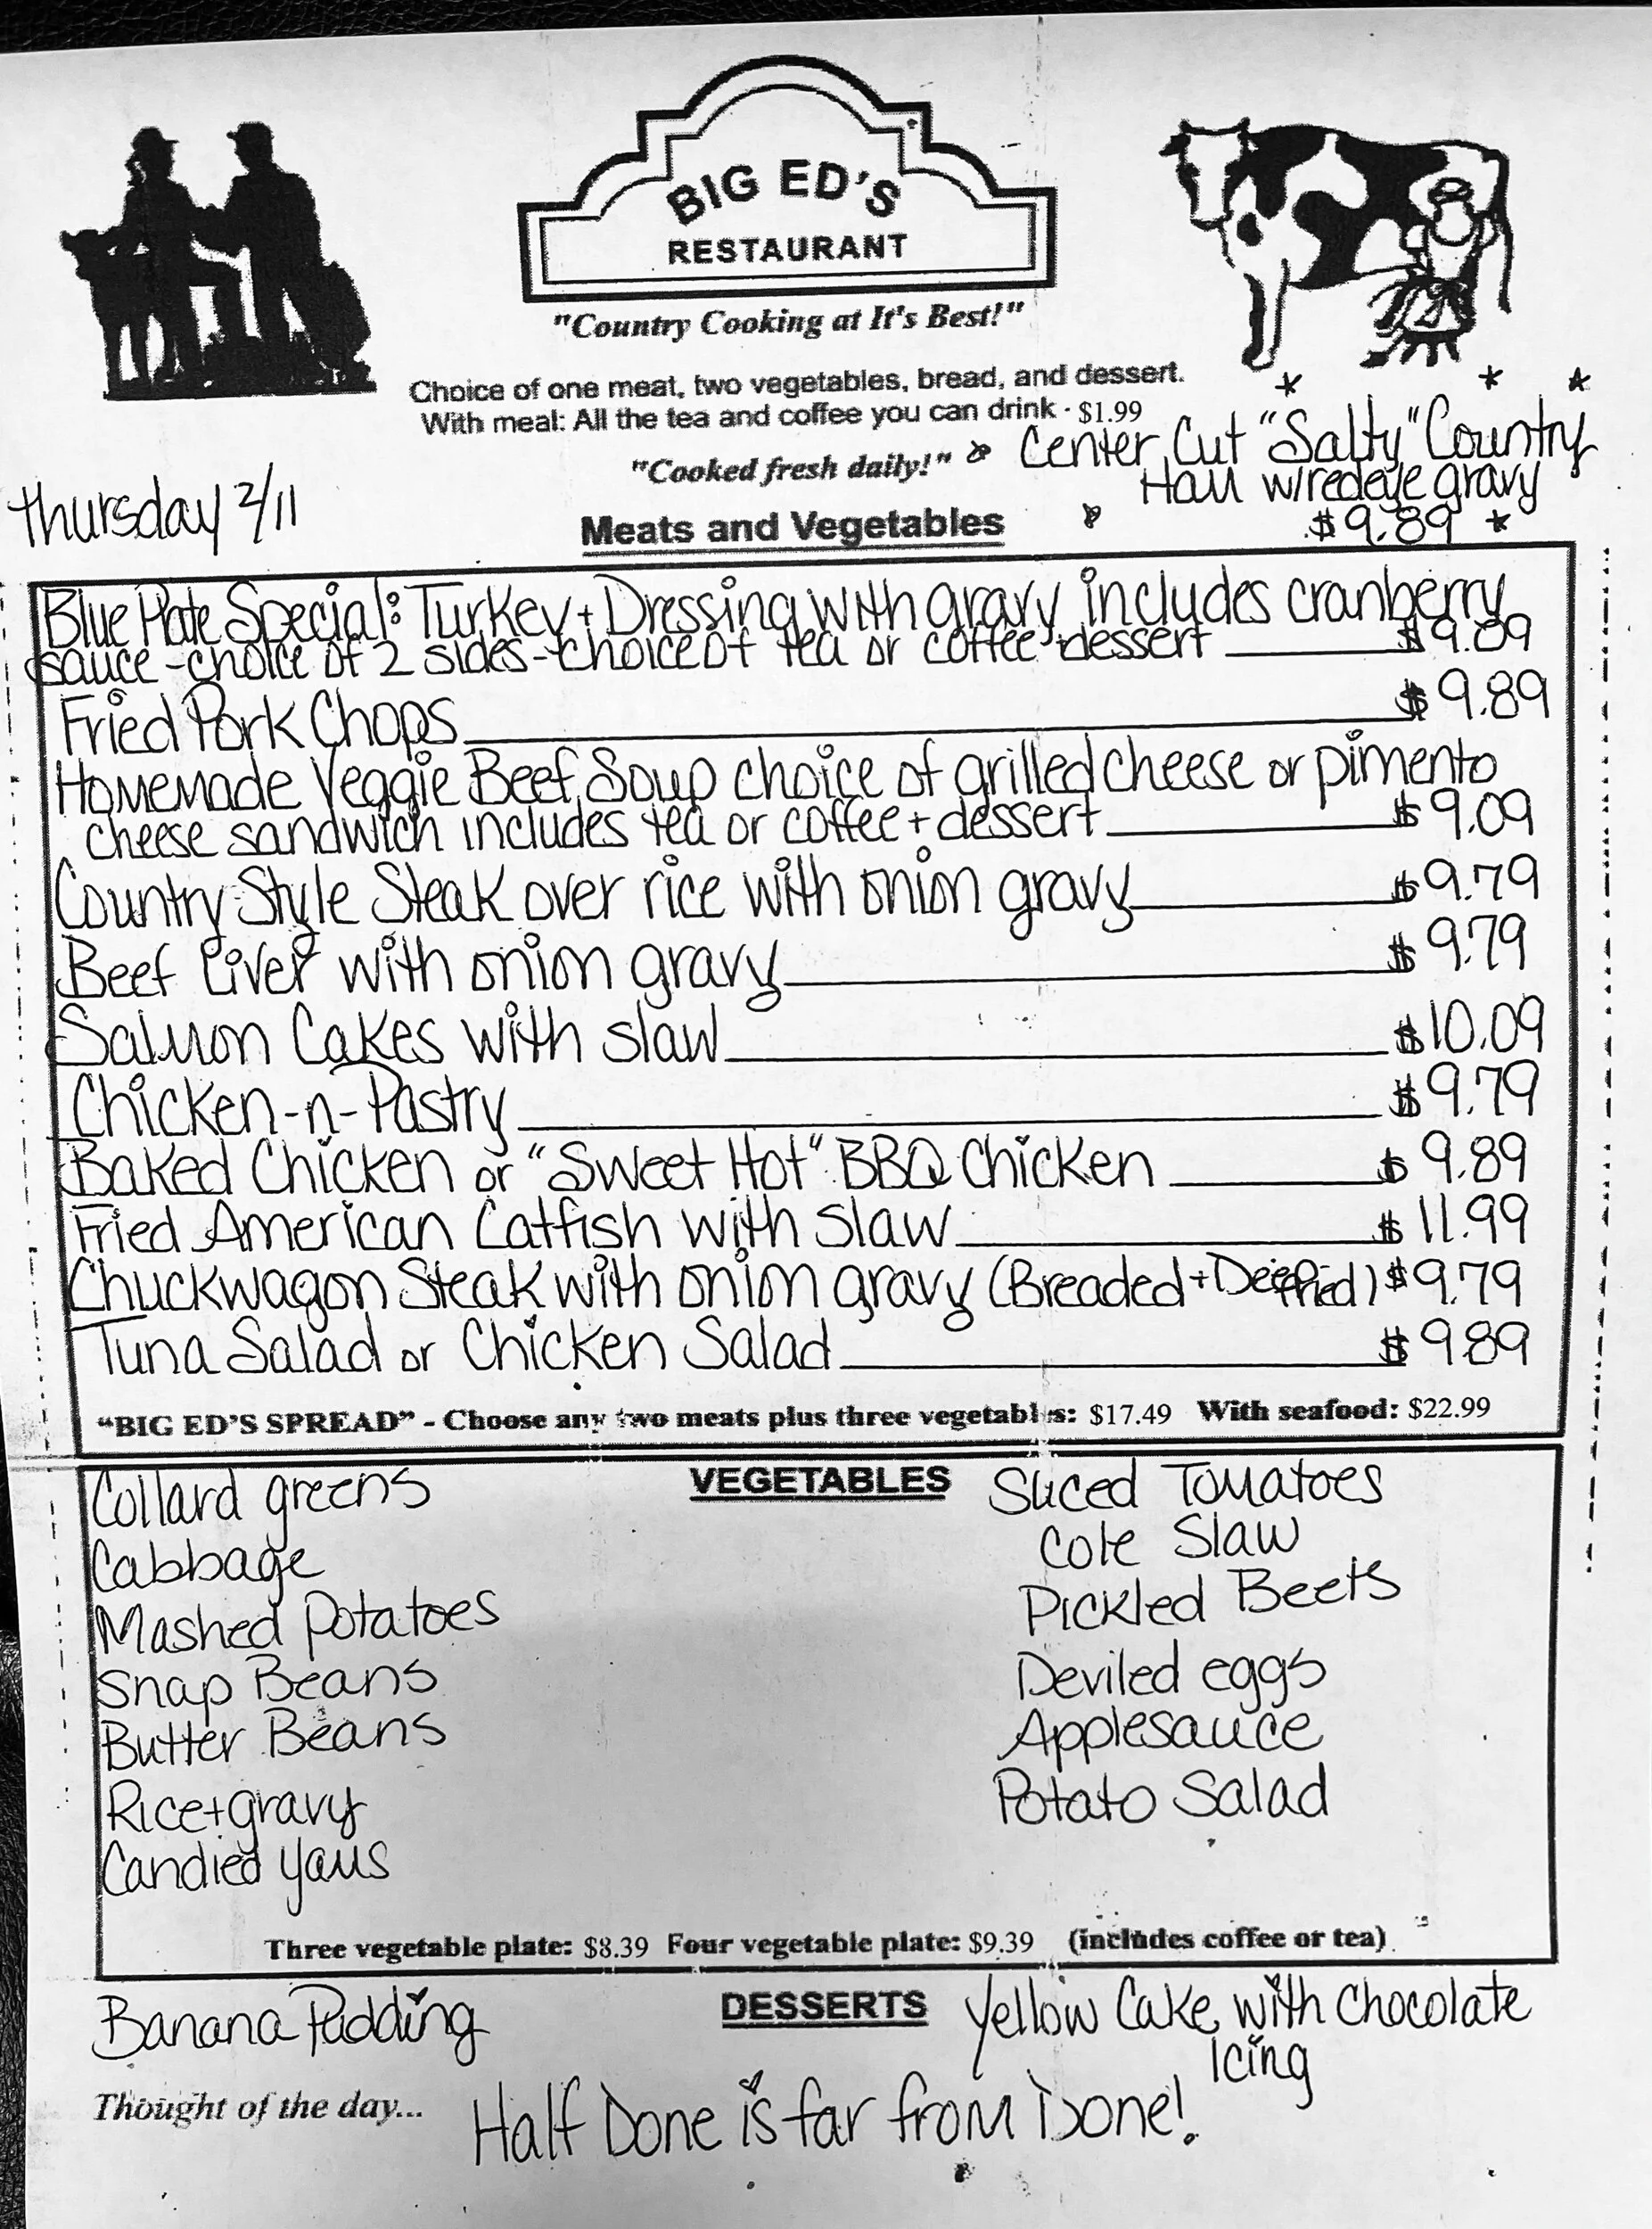 BIG ED'S
RESTAURANT
"Country Cooking at It's Best!"
Choice of one meat, two vegetables, bread, and dessert.
With meal: All the tea and coffee you can drink - $1.99
"Cooked fresh daily!"
Center Cut "Salty" Country
Ham w/redeye gravy
$9.89
Thursday 2/11
Meats and Vegetables
Blue Plate Special: Turkey + Dressing with gravy includes cranberry
sauce - choice of 2 sides - choice of tea or coffee + dessert $9.09
Fried Pork Chops $9.89
Homemade Veggie Beef Soup choice of grilled cheese or pimento
cheese sandwich includes tea or coffee + dessert $9.09
Country Style Steak over rice with onion gravy $9.79
Beef Liver with onion gravy $9.79
Salmon Cakes with slaw $10.09
Chicken-n-Pastry $9.79
Baked Chicken or "Sweet Hot" BBQ Chicken $9.89
Fried American Catfish with slaw $11.99
Chuckwagon Steak with onion gravy (Breaded + Deep fried) $9.79
Tuna Salad or Chicken Salad $9.89
"BIG ED'S SPREAD" - Choose any two meats plus three vegetables: $17.49 With seafood: $22.99
VEGETABLES
Collard greens
Cabbage
Mashed Potatoes
Snap Beans
Butter Beans
Rice + gravy
Candied yams
Sliced Tomatoes
Cole Slaw
Pickled Beets
Deviled eggs
Applesauce
Potato Salad
Three vegetable plate: $8.39 Four vegetable plate: $9.39 (includes coffee or tea)
DESSERTS
Banana Pudding
Yellow Cake with Chocolate
Icing
Thought of the day... Half Done is far from Done!